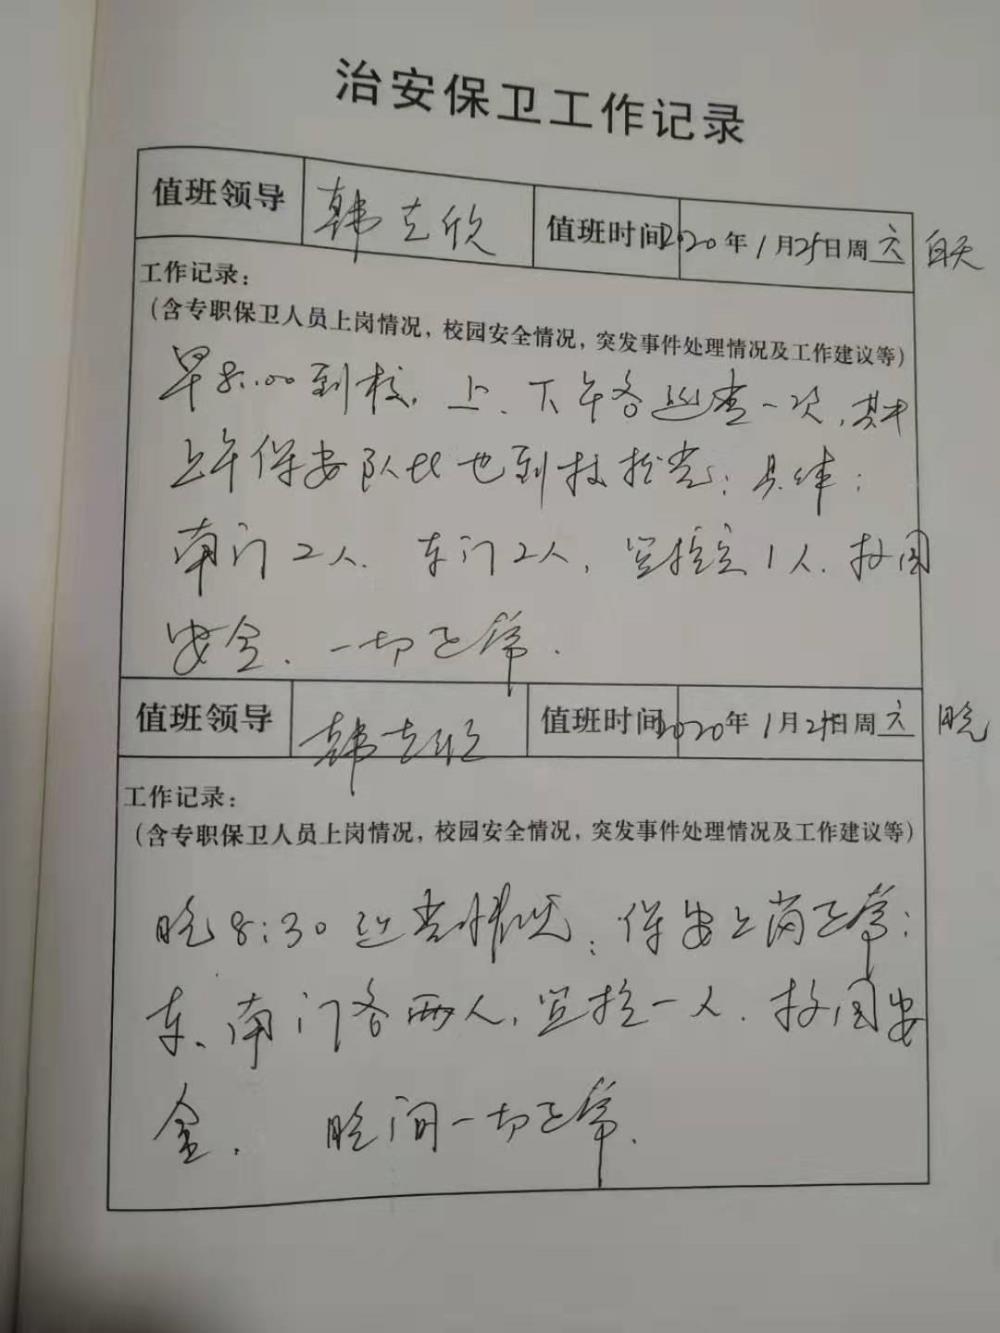 治安保卫工作记录
值班领导 韩克欣 值班时间 2020年1月25日周六 白天
工作记录：
（含专职保卫人员上岗情况，校园安全情况，突发事件处理情况及工作建议等）
早8:00到校，上、下午各巡查一次，其中
上午保安队长也到校检查；具体：
南门2人、东门2人，监控室1人，校园
安全、一切正常．
值班领导 韩克欣 值班时间 2020年1月25日周六 晚
工作记录：
（含专职保卫人员上岗情况，校园安全情况，突发事件处理情况及工作建议等）
晚8:30巡查情况：保安上岗正常：
东、南门各两人，监控一人．校园安
全． 晚间一切正常．